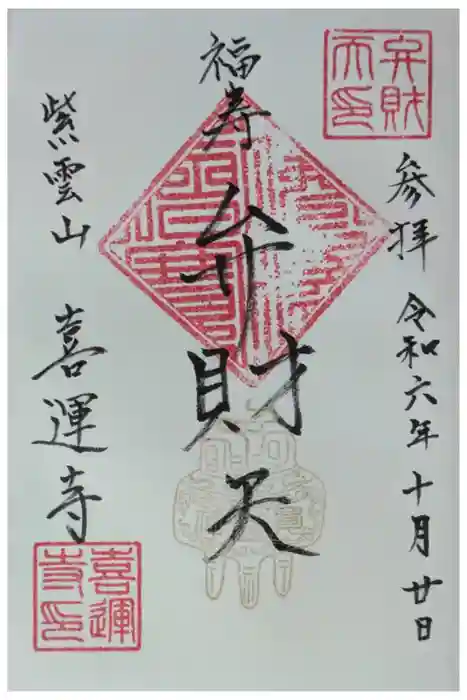 参拝 令和六年十月廿日
福寿
弁財天
紫雲山 喜運寺
弁財
天印
喜運
寺印